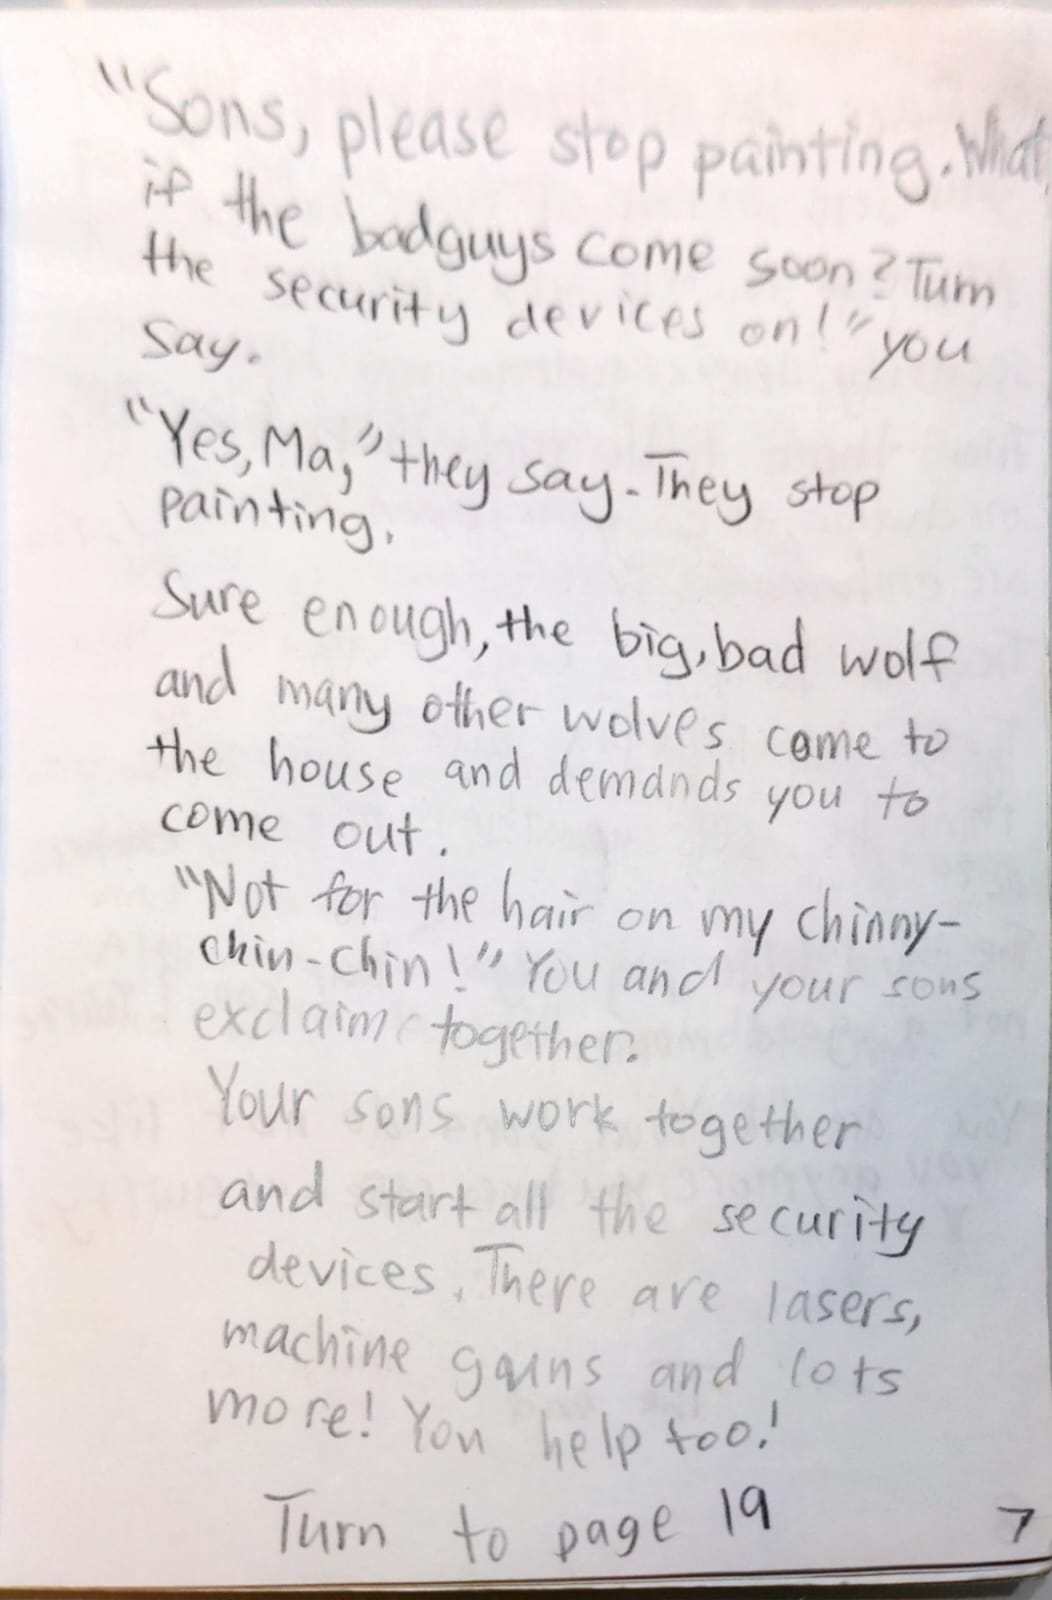 "Sons, please stop painting. What
if the badguys come soon? Turn
the security devices on!" you
say.
"Yes, Ma," they say. They stop
painting.
Sure enough, the big, bad wolf
and many other wolves come to
the house and demands you to
come out.
"Not for the hair on my chinny-
chin-chin!" You and your sons
exclaim together.
Your sons work together
and start all the security
devices. There are lasers,
machine guns and lots
more! You help too!
Turn to page 19
7